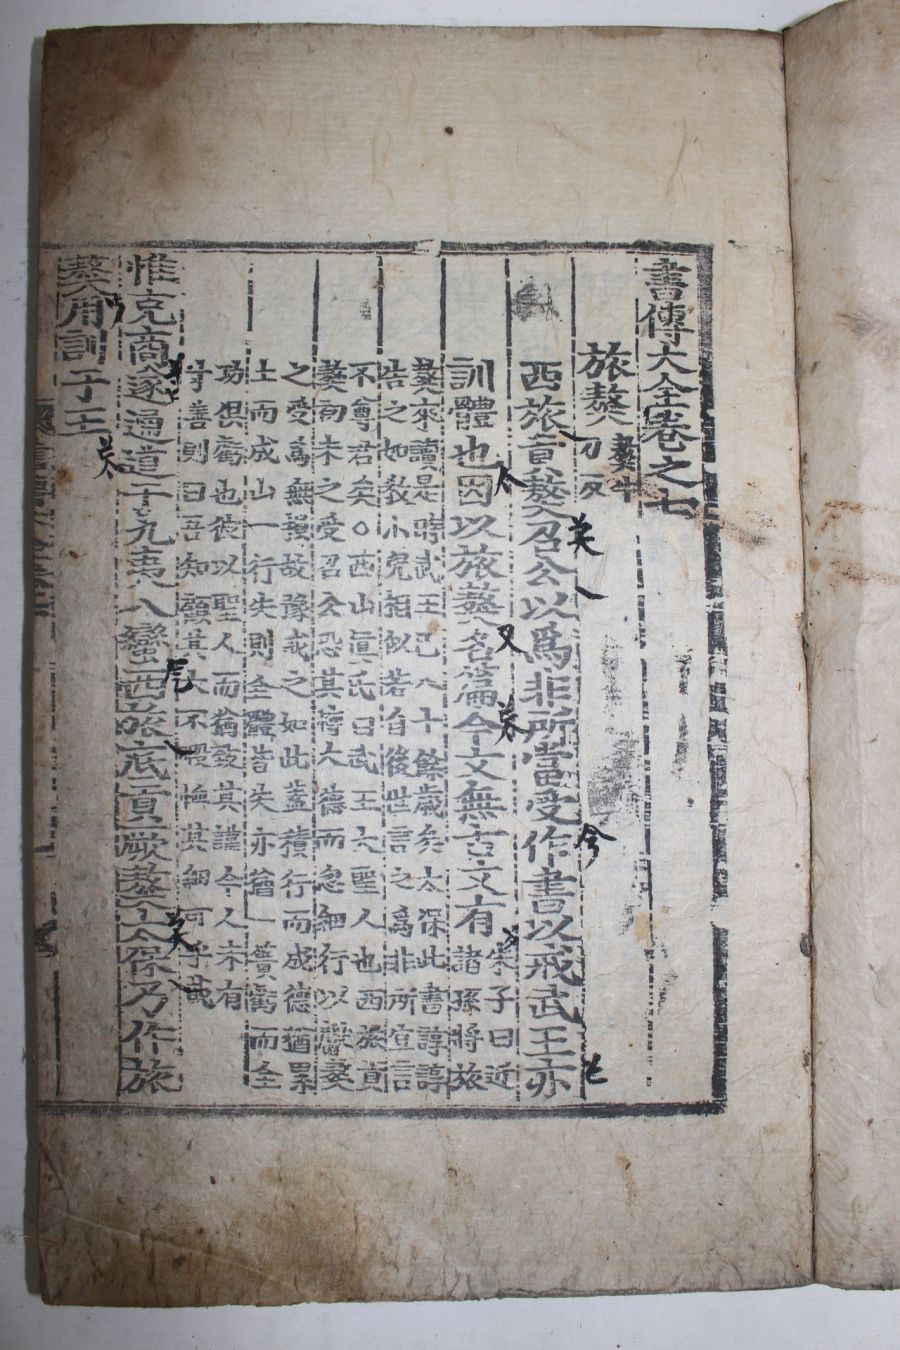 書傳大全卷之七
旅獒 獒牛刀反
西旅貢獒召公以爲非所當受作書以戒武王亦
訓體也因以旅獒名篇今文無古文有 朱子曰近
諸孫將旅
獒來讀是時武王已八十餘歲矣太保此書諄諄
告之如敎小兒相似若自後世言之爲非所宜言
不尊君矣○西山眞氏曰武王大聖人也西旅貢
獒而未之受召公恐其恃大德而忽細行以獒
之受爲無損故豫戒之如此蓋積行而成德猶累
土而成山一行失則全體皆失亦猶一簣虧而全
功俱虧也彼以聖人而猶致其謹今人未有
寸善則曰吾知顧其大不暇恤其細可乎哉
惟克商遂通道于九夷八蠻西旅底貢厥獒太保乃作旅
獒用訓于王